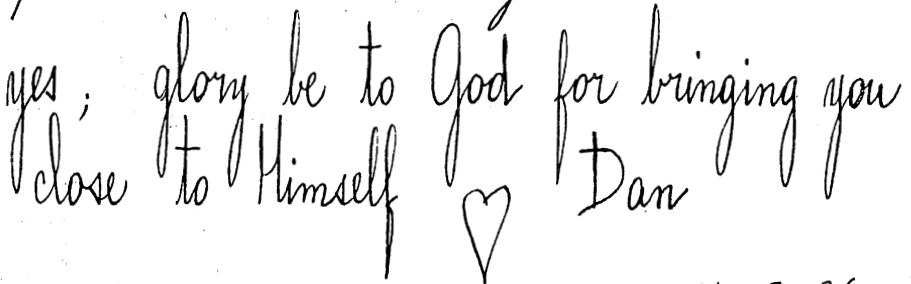 yes; glory be to God for bringing you
close to Himself ♡ Dan